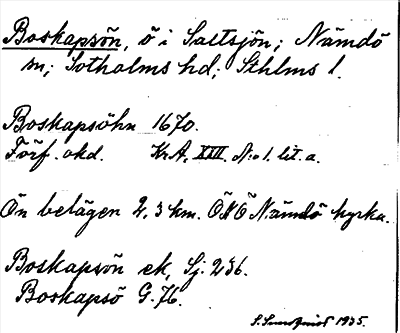 Boskapsön, ö i Saltsjön; Nämdö
sn; Sotholms hd; Sthlms l.
Boskapsöhn 1670.
Förf. okd. KrA, XXII. N:o 1. lit. a.
Ön belägen 2,3 km. ÖNÖ Nämdö kyrka.
Boskapsön ek, Sj. 236.
Boskapsö G. 76.
1935.